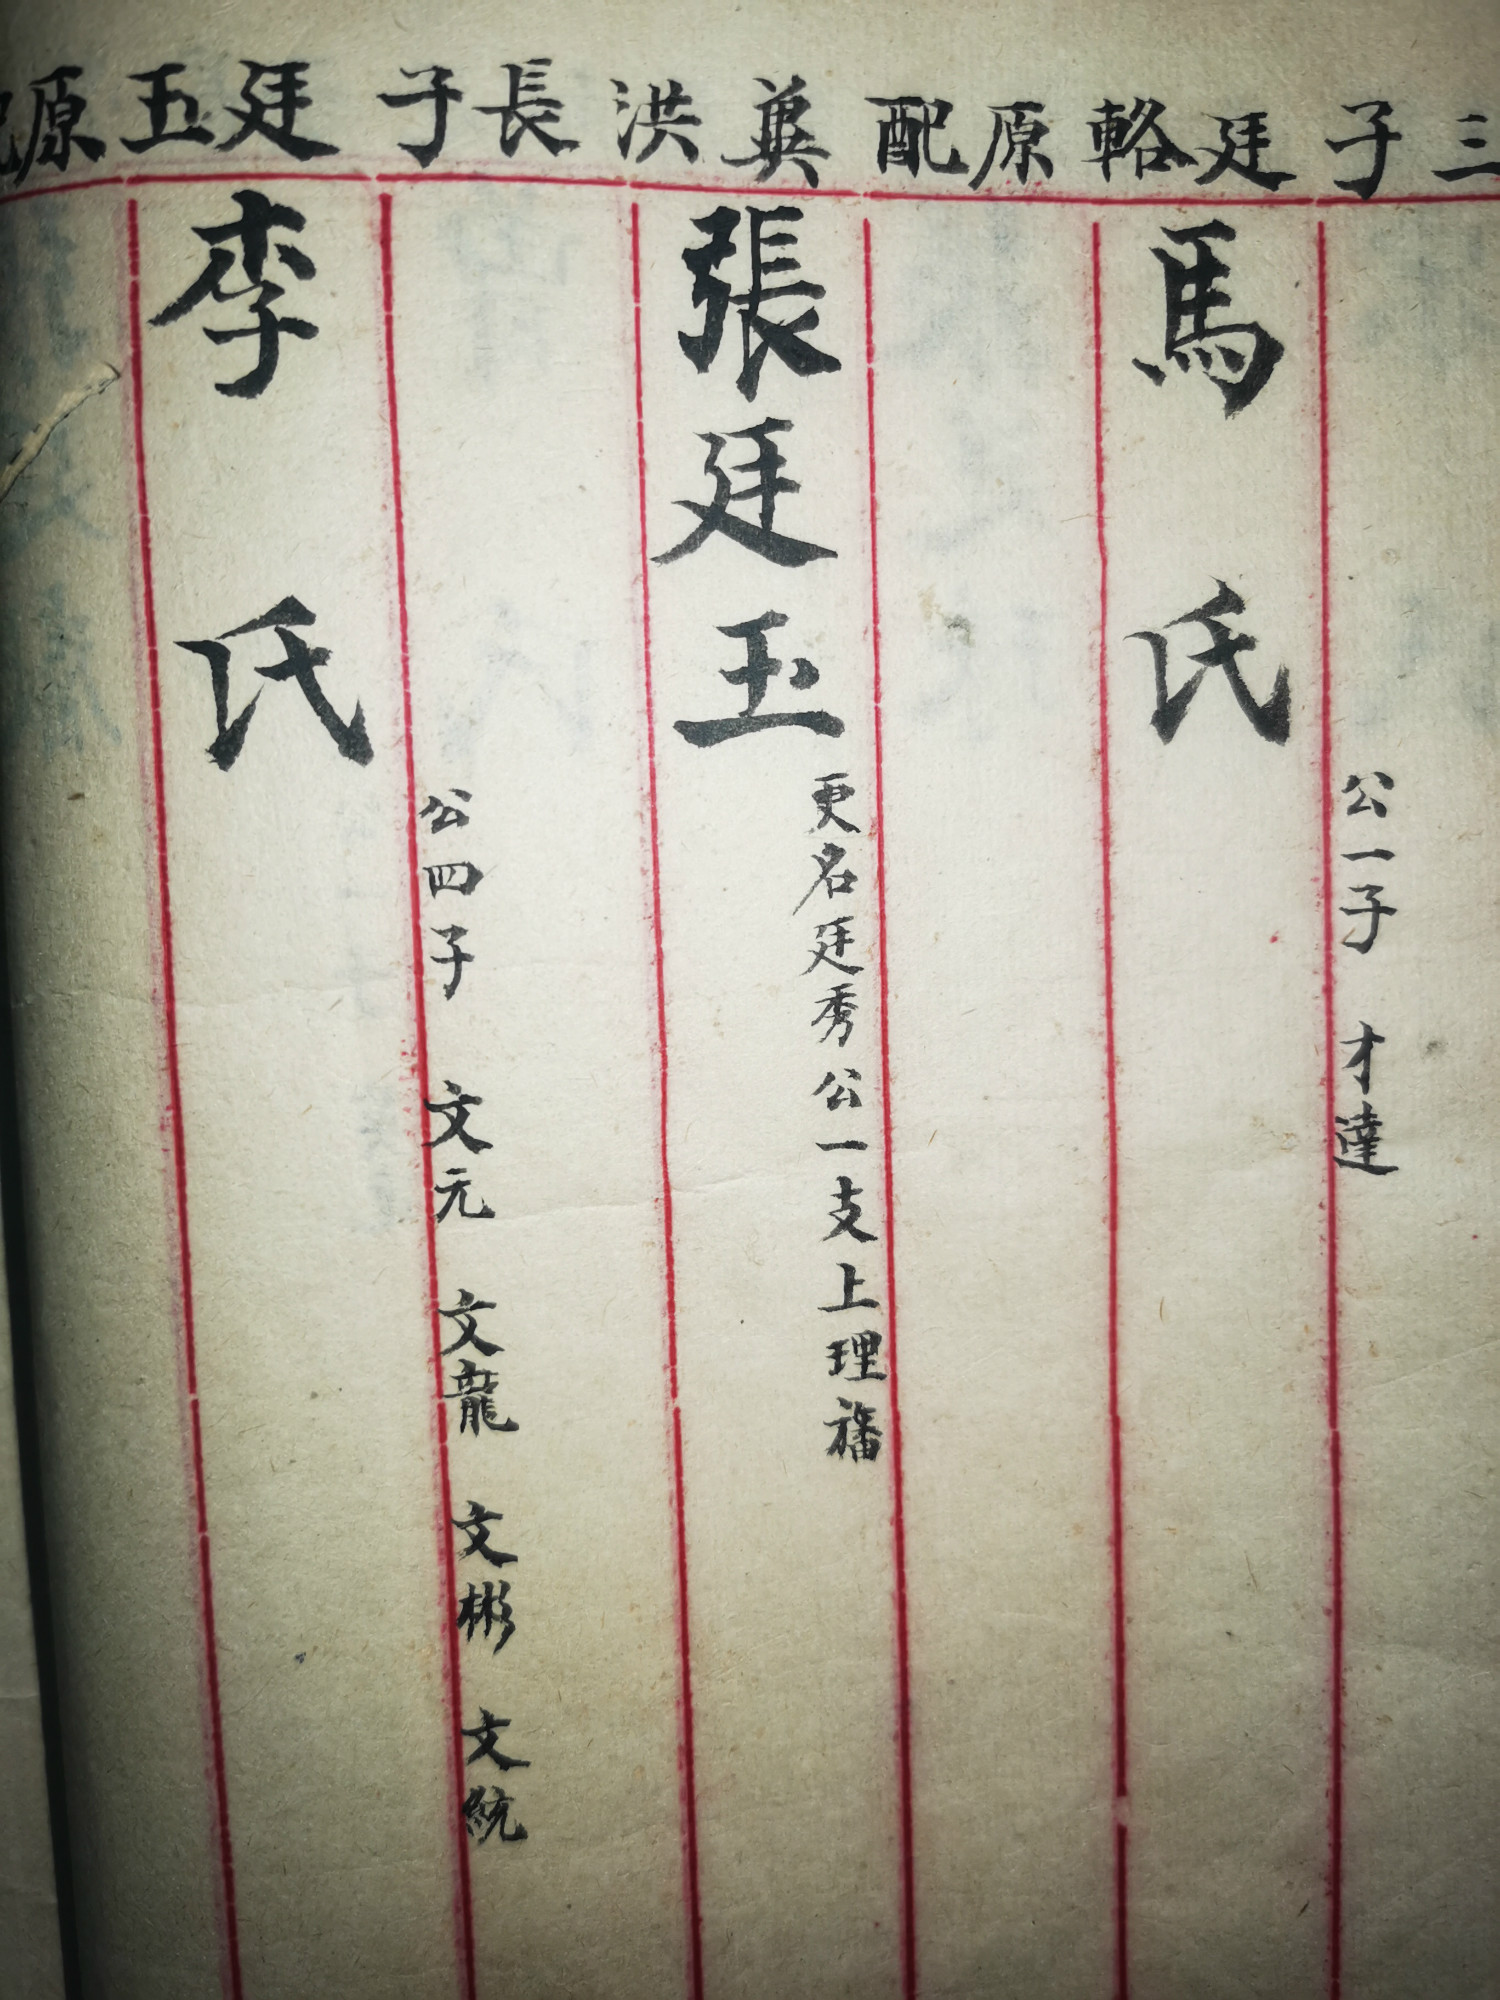 三子廷輅原配洪長子廷玉原
公一子 才達
馬氏
張廷玉
更名廷秀公一支上理
公四子 文元 文龍 文彬 文統
李氏